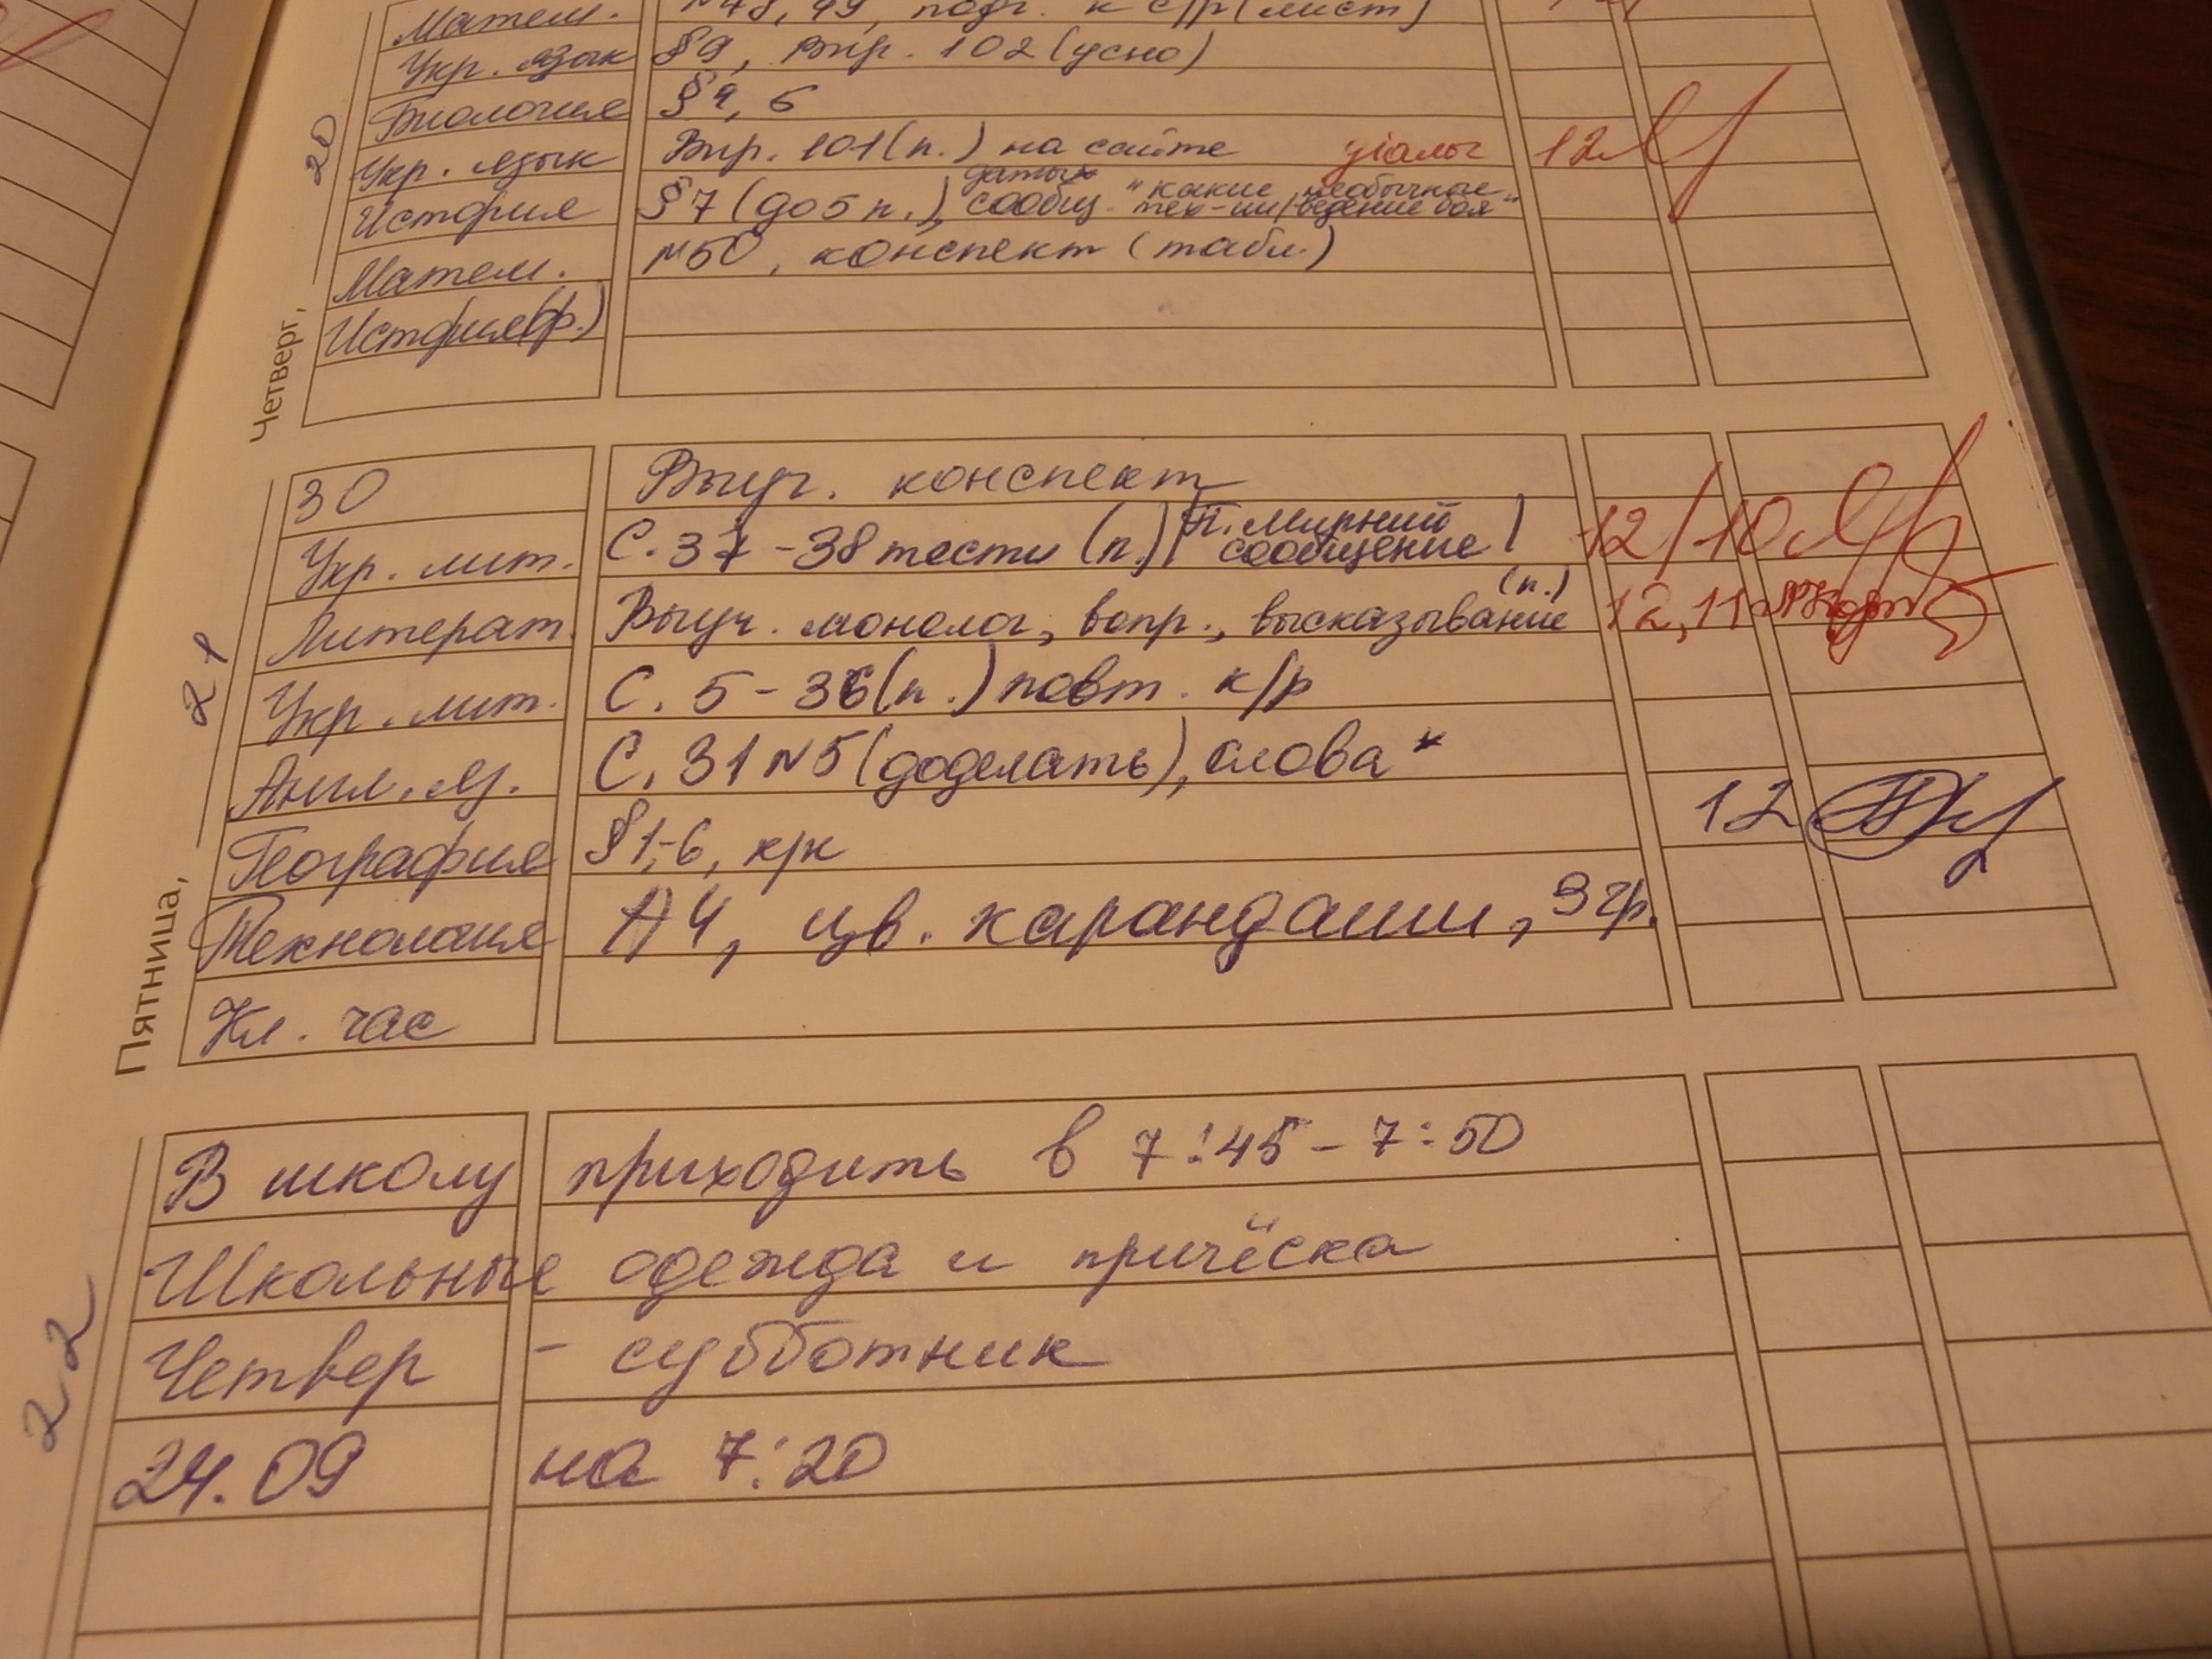 Матем. №48, 49, подг. к с/р (лист)
Укр. язык §9, впр. 102 (усно)
Биология §4, 6
Укр. язык Впр. 101 (п.) на сайте діалог 12
История §7 (до 5 п.), даты* сообщ. "какие необычные тех-ии/ведение боя"
Матем. №50, конспект (табл.)
История(ф.)
Четверг, 20
ЗО Выуч. конспект
Укр. лит. С. 37-38 тести (п.) П. Мирний сообщение 12/10
Литерат. Выуч. монолог, вопр., высказывание (п.) 12, 11
Укр. лит. С. 5-36 (п.) повт. к/р
Англ. яз. С. 31 №5 (доделать), слова*
География §1-6, к/к 12
Технология А4, цв. карандаши, 3 гр.
Кл. час
Пятница, 21
В школу приходить в 7:45-7:50
Школьные одежда и причёска
Четвер - субботник
24.09 на 7:20
22